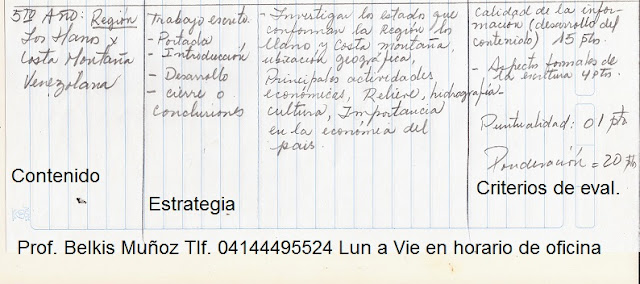 5to Año: Región
Los Llanos y
Costa Montaña
Venezolana
Contenido
Trabajo escrito.
- Portada
- Introducción
- Desarrollo
- cierre o
conclusiones
Estrategia
- Investigar los estados que
conforman la Región los
llano y Costa montaña,
ubicación geográfica,
Principales actividades
económicas, Relieve, hidrografía
cultura, Importancia
en la economía del
país.
calidad de la infor-
mación (desarrollo del
contenido) 15 pts.
- Aspectos formales de
la escritura 4 pts.
Puntualidad: 01 pto
Ponderación = 20 pts
Criterios de eval.
Prof. Belkis Muñoz Tlf. 04144495524 Lun a Vie en horario de oficina